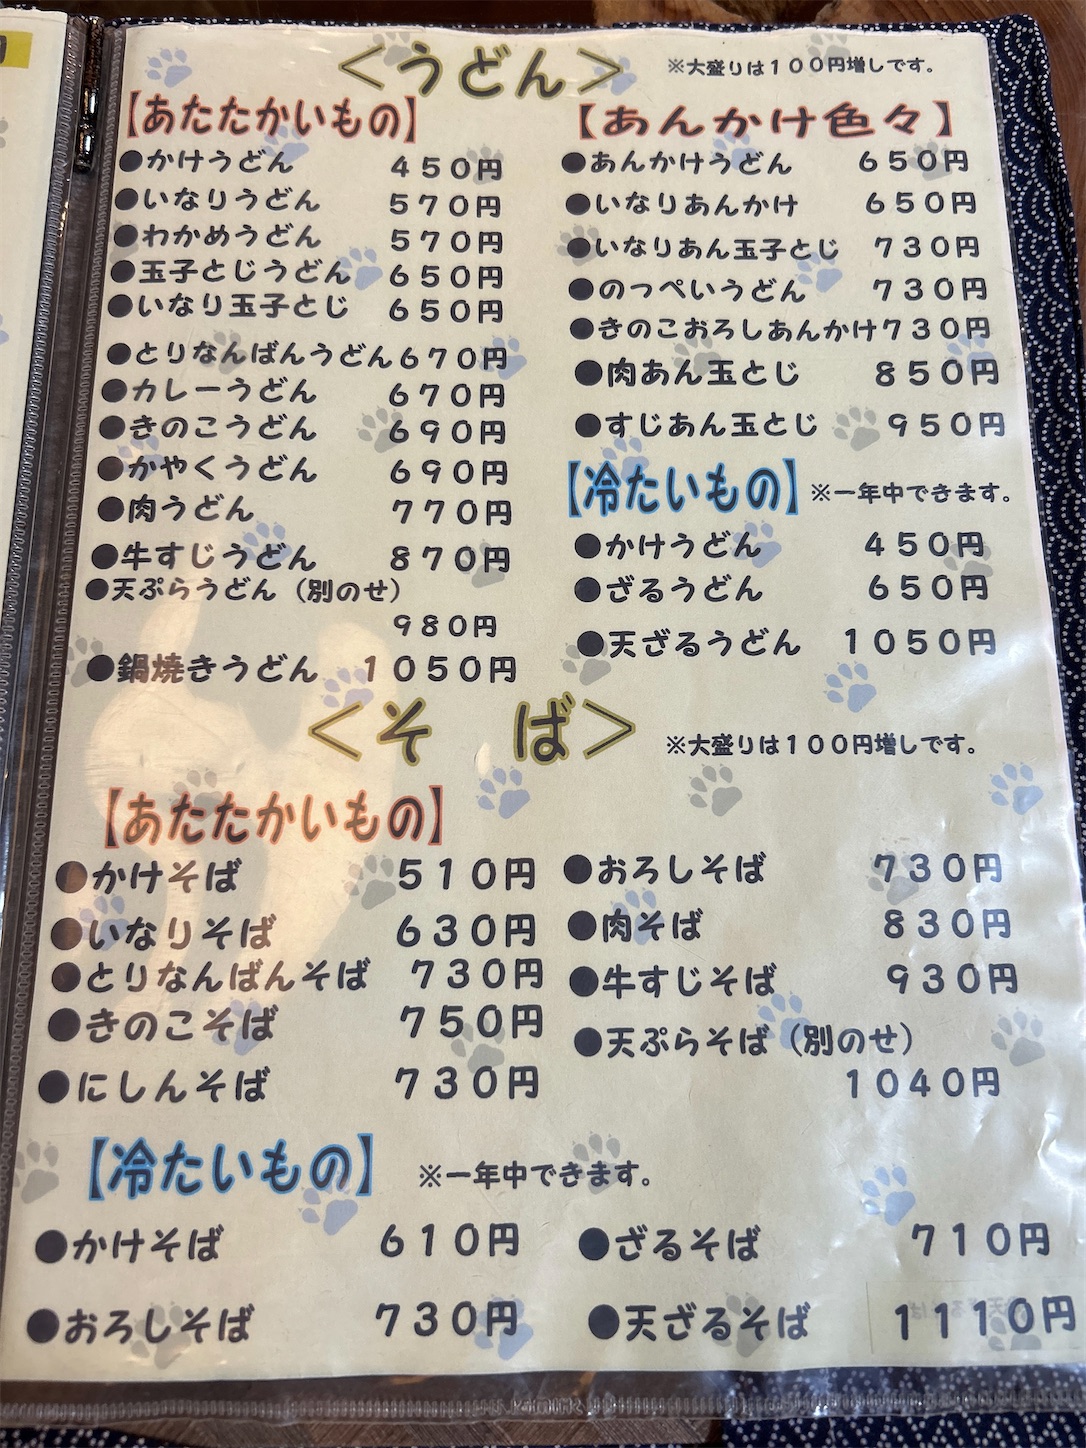 <うどん>
※大盛りは100円増しです。
【あたたかいもの】
●かけうどん 450円
●いなりうどん 570円
●わかめうどん 570円
●玉子とじうどん 650円
●いなり玉子とじ 650円
●とりなんばんうどん 670円
●カレーうどん 670円
●きのこうどん 690円
●かやくうどん 690円
●肉うどん 770円
●牛すじうどん 870円
●天ぷらうどん(別のせ)
980円
●鍋焼きうどん 1050円
【あんかけ色々】
●あんかけうどん 650円
●いなりあんかけ 650円
●いなりあん玉子とじ 730円
●のっぺいうどん 730円
●きのこおろしあんかけ 730円
●肉あん玉とじ 850円
●すじあん玉とじ 950円
【冷たいもの】※一年中できます。
●かけうどん 450円
●ざるうどん 650円
●天ざるうどん 1050円
<そ ば>
※大盛りは100円増しです。
【あたたかいもの】
●かけそば 510円
●いなりそば 630円
●とりなんばんそば 730円
●きのこそば 750円
●にしんそば 730円
●おろしそば 730円
●肉そば 830円
●牛すじそば 930円
●天ぷらそば(別のせ)
1040円
【冷たいもの】 ※一年中できます。
●かけそば 610円
●おろしそば 730円
●ざるそば 710円
●天ざるそば 1110円